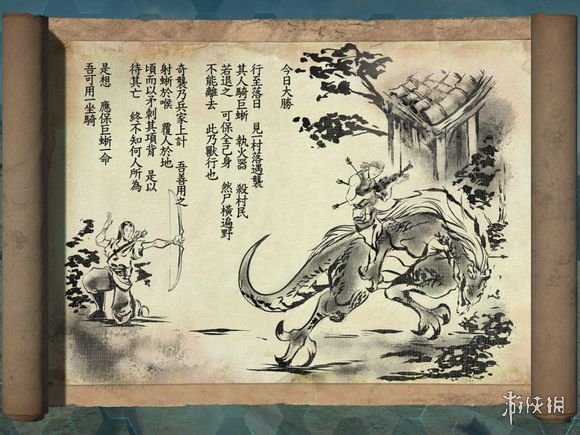 今日大勝
行至落日　見一村落遇襲
其人騎巨蜥　執火器　殺村民
若退之　可保全己身　然尸橫遍野
不能離去　此乃獸行也
奇襲乃兵家上計　吾善用之
射蜥於喉　覆人於地
頃而以矛刺其項背　是以
待其亡　終不知何人所為
是想　應保巨蜥一命
吾可用一坐騎
游侠網